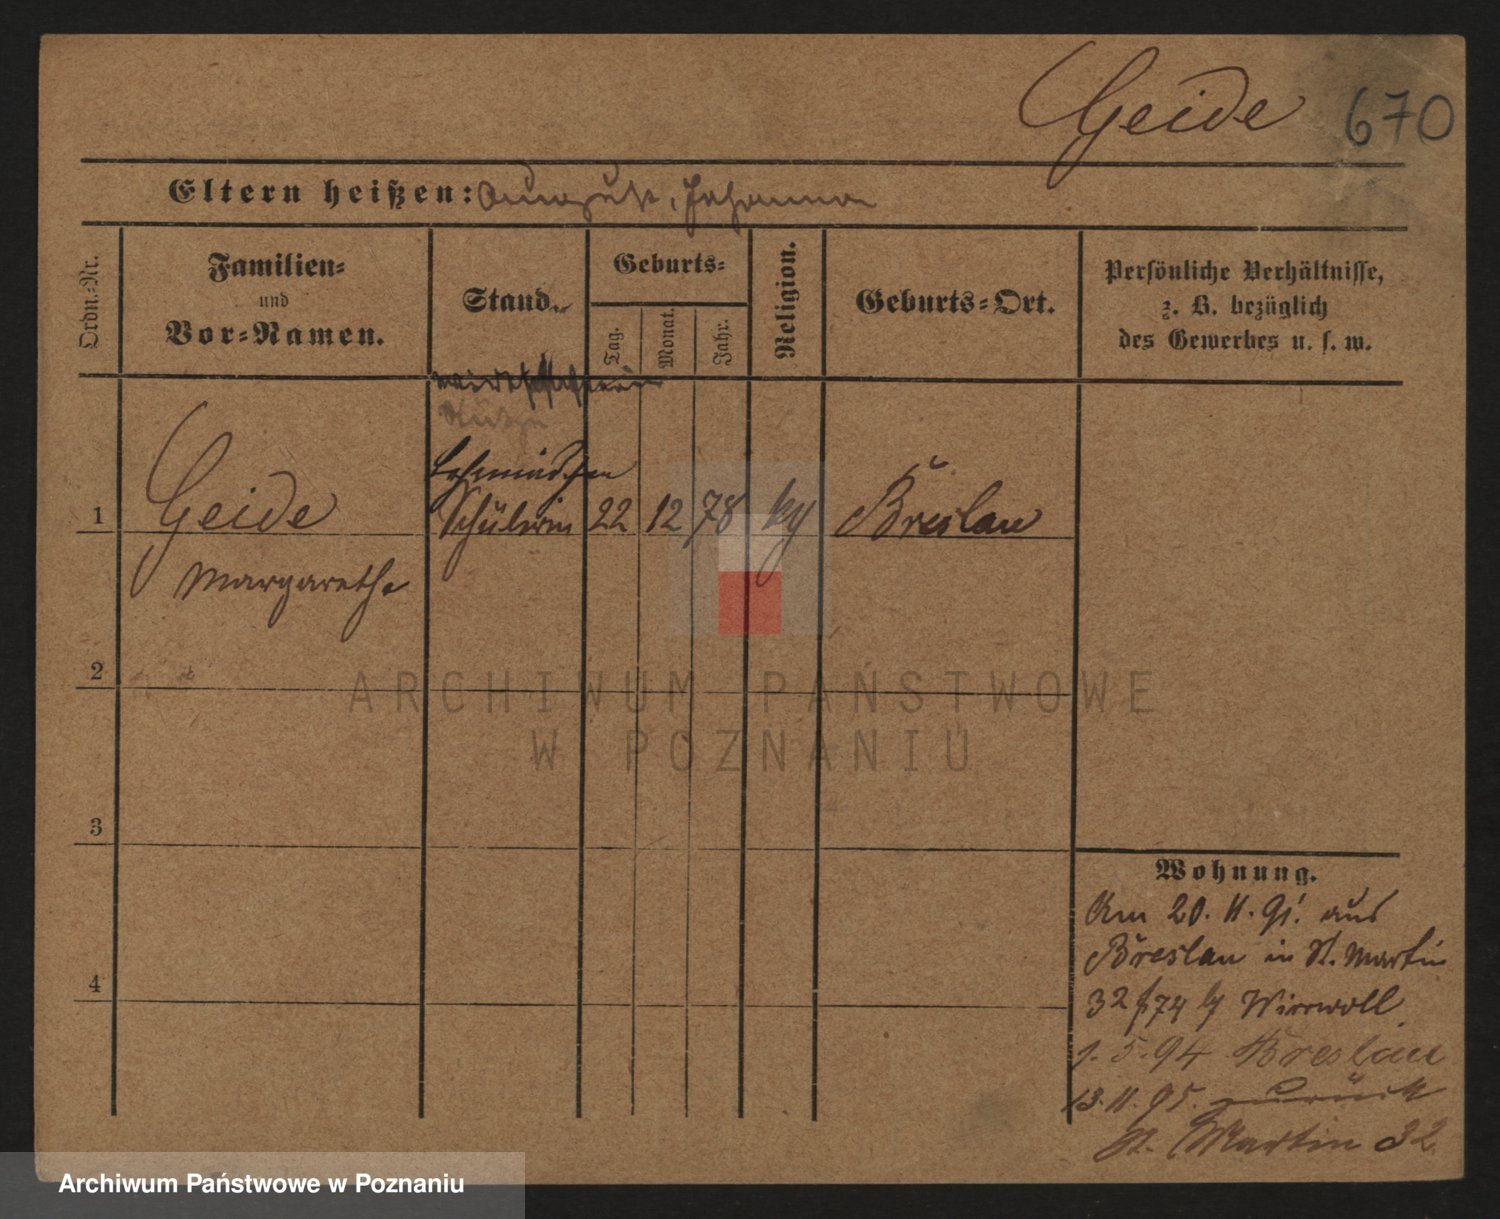 Geide 670
Eltern heißen: August, Johanna
Ordn.-Nr.
Familien-
und
Vor-Namen.
Stand.
Geburts-
Tag.
Monat.
Jahr.
Religion.
Geburts-Ort.
Persönliche Verhältnisse,
z. B. bezüglich
des Gewerbes u. s. w.
1 Geide Schülerin 22 12 78 kg Breslau
Margarethe
2
3
4
Wohnung.
Am 20. 11. 91. aus
Breslau in St. Martin
32 b/
1. 5. 94 Breslau
13. 11. 95. zurück
St. Martin 32
ARCHIWUM PAŃSTWOWE
W POZNANIU
Archiwum Państwowe w Poznaniu